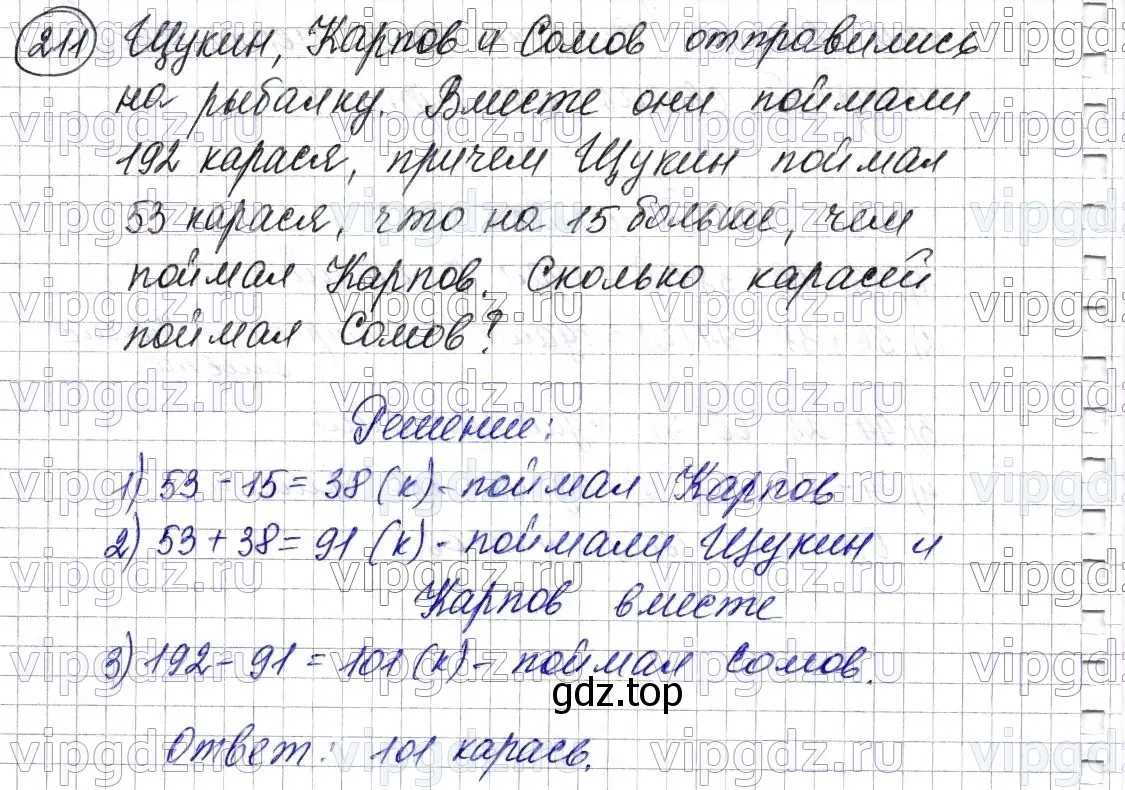 211 Щукин, Карпов и Сомов отправились
на рыбалку. Вместе они поймали
192 карася, причем Щукин поймал
53 карася, что на 15 больше, чем
поймал Карпов. Сколько карасей
поймал Сомов?
Решение:
1) 53 - 15 = 38 (к) - поймал Карпов
2) 53 + 38 = 91 (к) - поймали Щукин и
Карпов вместе
3) 192 - 91 = 101 (к) - поймал Сомов.
gdz.top
Ответ: 101 карась.